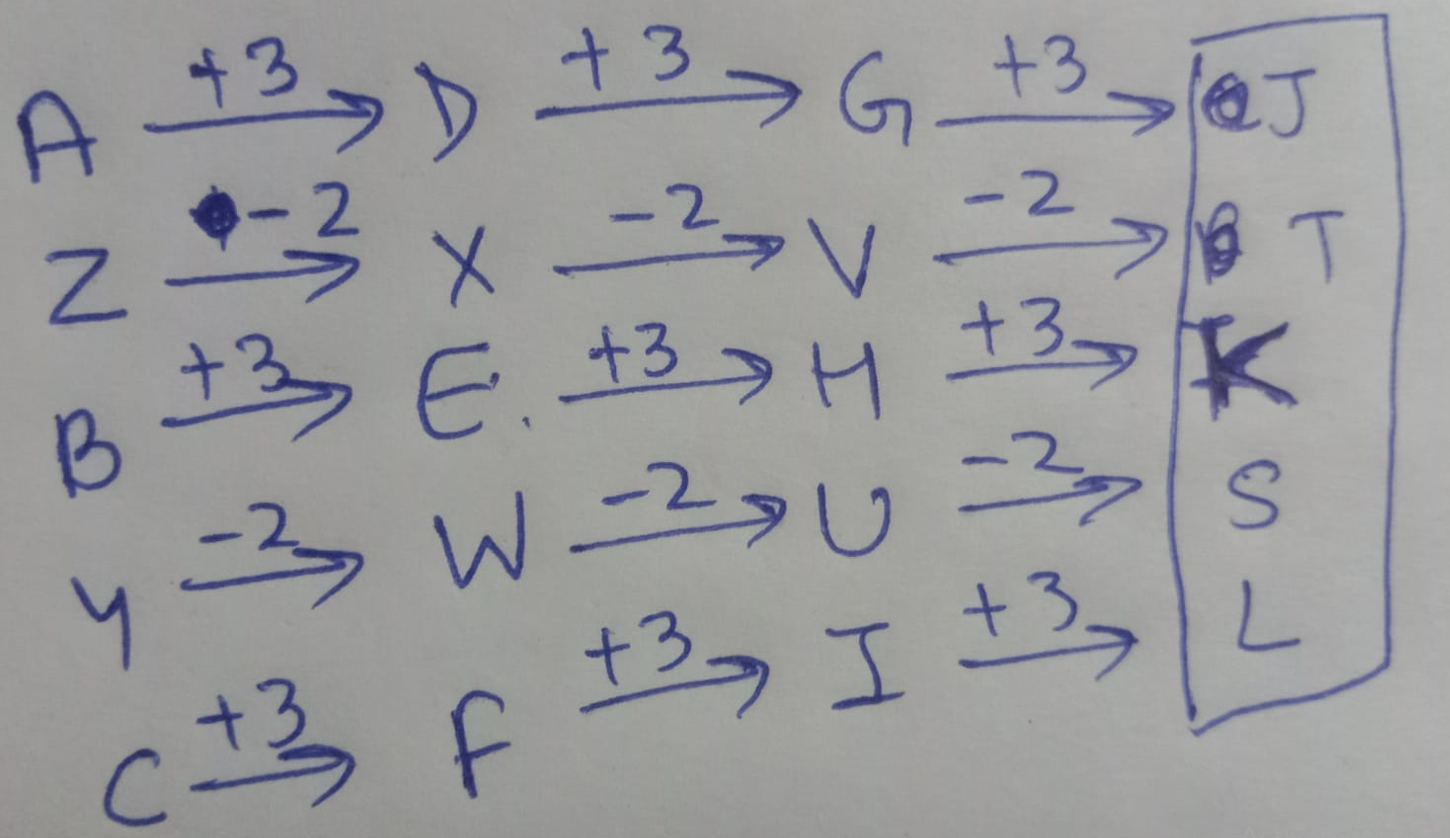 A +3 → D +3 → G +3 → J
Z -2 → X -2 → V -2 → T
B +3 → E. +3 → H +3 → K
Y -2 → W -2 → U -2 → S
C +3 → F +3 → I +3 → L